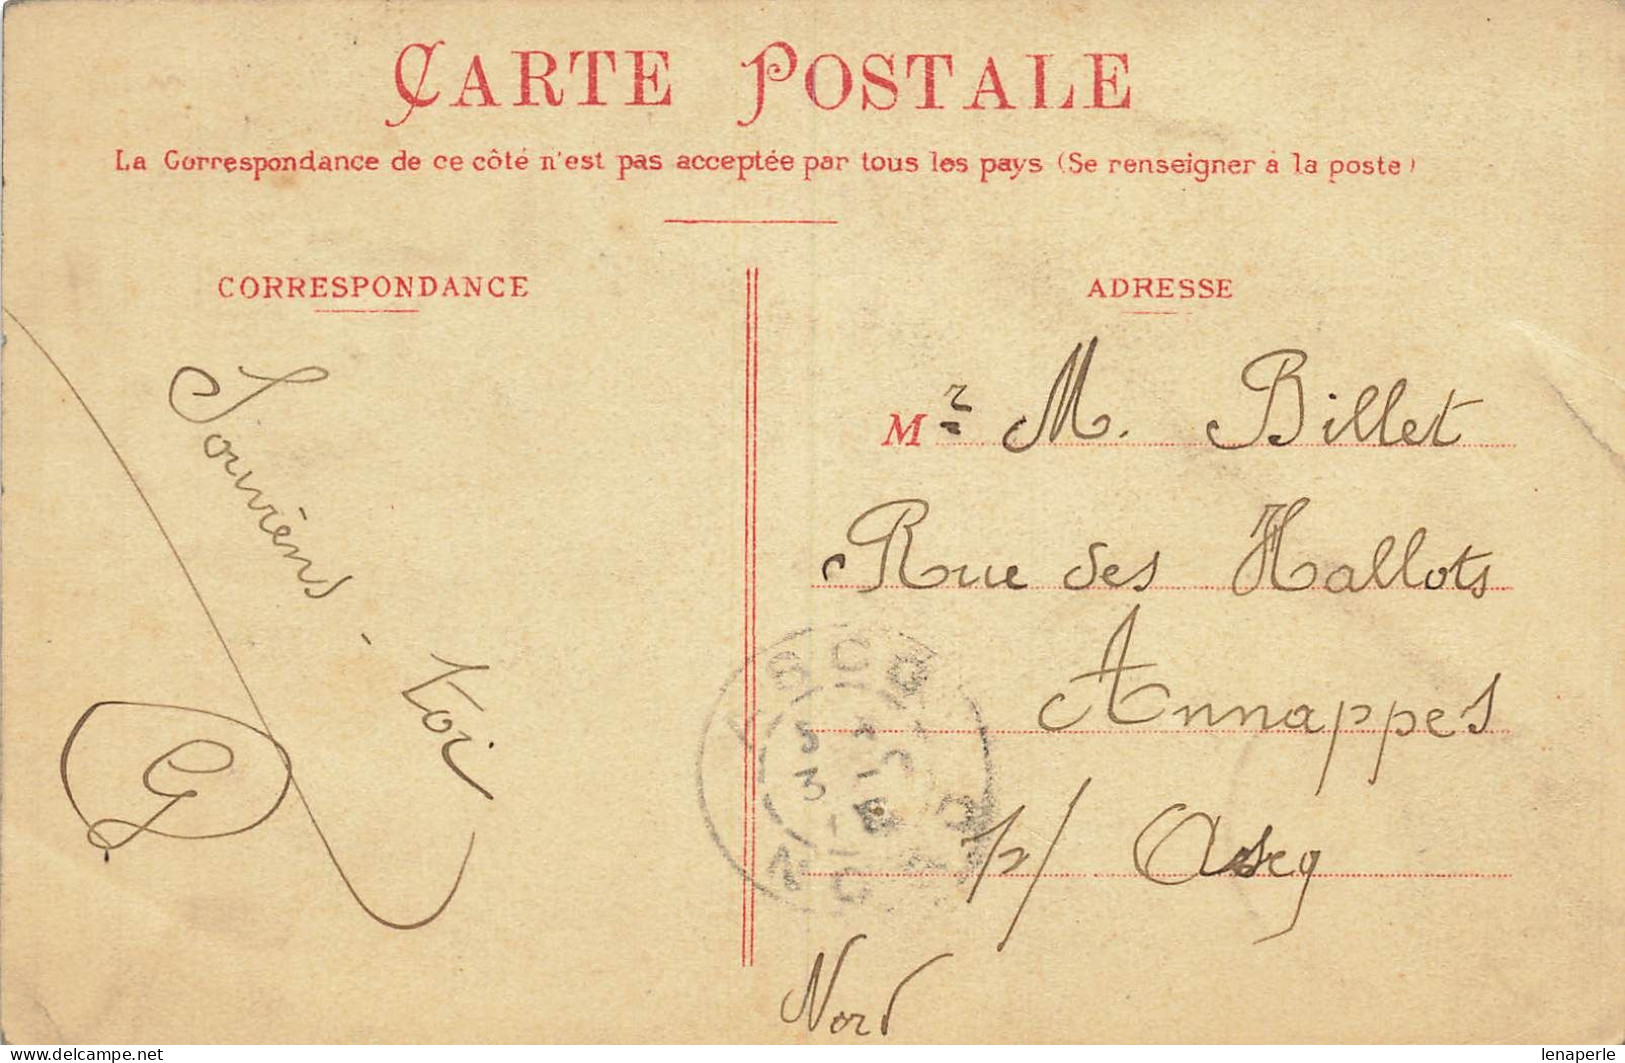 CARTE POSTALE
La Correspondance de ce côté n'est pas acceptée par tous les pays (Se renseigner à la poste)
CORRESPONDANCE
Souvièns-toi
G
ADRESSE
Mr M. Billet
Rue des Hallots
Annappes
p/ Ascq
Nord
ASCQ
NORD
www.delcampe.net
lenaperle